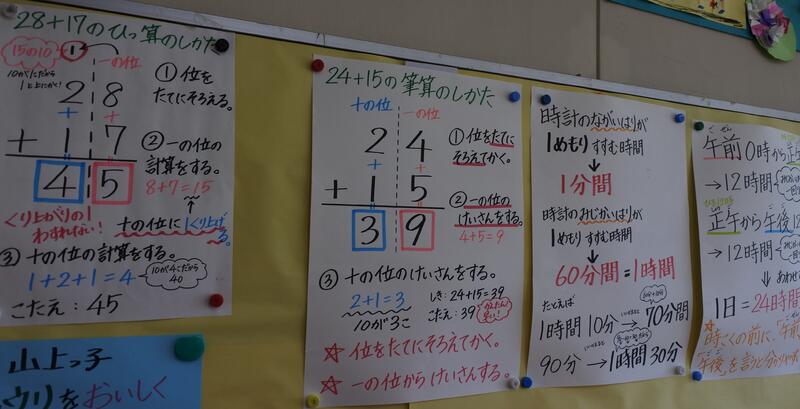 28+17のひっ算のしかた
15の10
1
一の位
10が1こだから
2 8
+ +
+ 1 7
4 5
①位を
たてにそろえる。
②一の位の
計算をする。
8+7=15
十の位に1くり上げる。
くり上がりの1
わすれない!
③十の位の計算をする。
1+2+1=4
10が4こだから
40
こたえ:45
山上っ子
ウリをおいしく
24+15の筆算のしかた
十の位 一の位
2 4
+ +
+ 1 5
3 9
①位をたてに
そろえてかく。
②一の位の
けいさんをする。
4+5=9
③十の位のけいさんをする。
2+1=3
10が3こ
しき:24+15=39
こたえ:39
☆位をたてにそろえてかく。
☆一の位からけいさんする。
時計のながいはりが
1めもりすすむ時間
↓
1分間
時計のみじかいはりが
1めもりすすむ時間
↓
60分間=1時間
たとえば
1時間10分→70分間
90分→1時間30分
午前0時から正
→12時間
正午から午後12
→12時間
↓あわせ
1日=24時間
☆時こくの前に、「午前
午後」を言うと分かりや